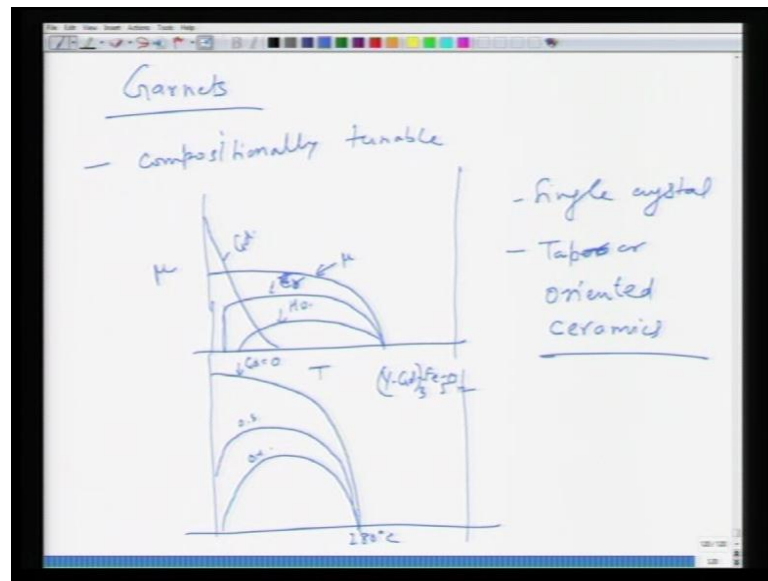 File Edit View Insert Actions Tools Help
Garnets
- compositionally tunable
- Single crystal
- Tape or
oriented
ceramics
μ
Gd
μ
Ho
Gd=0
T
280°C